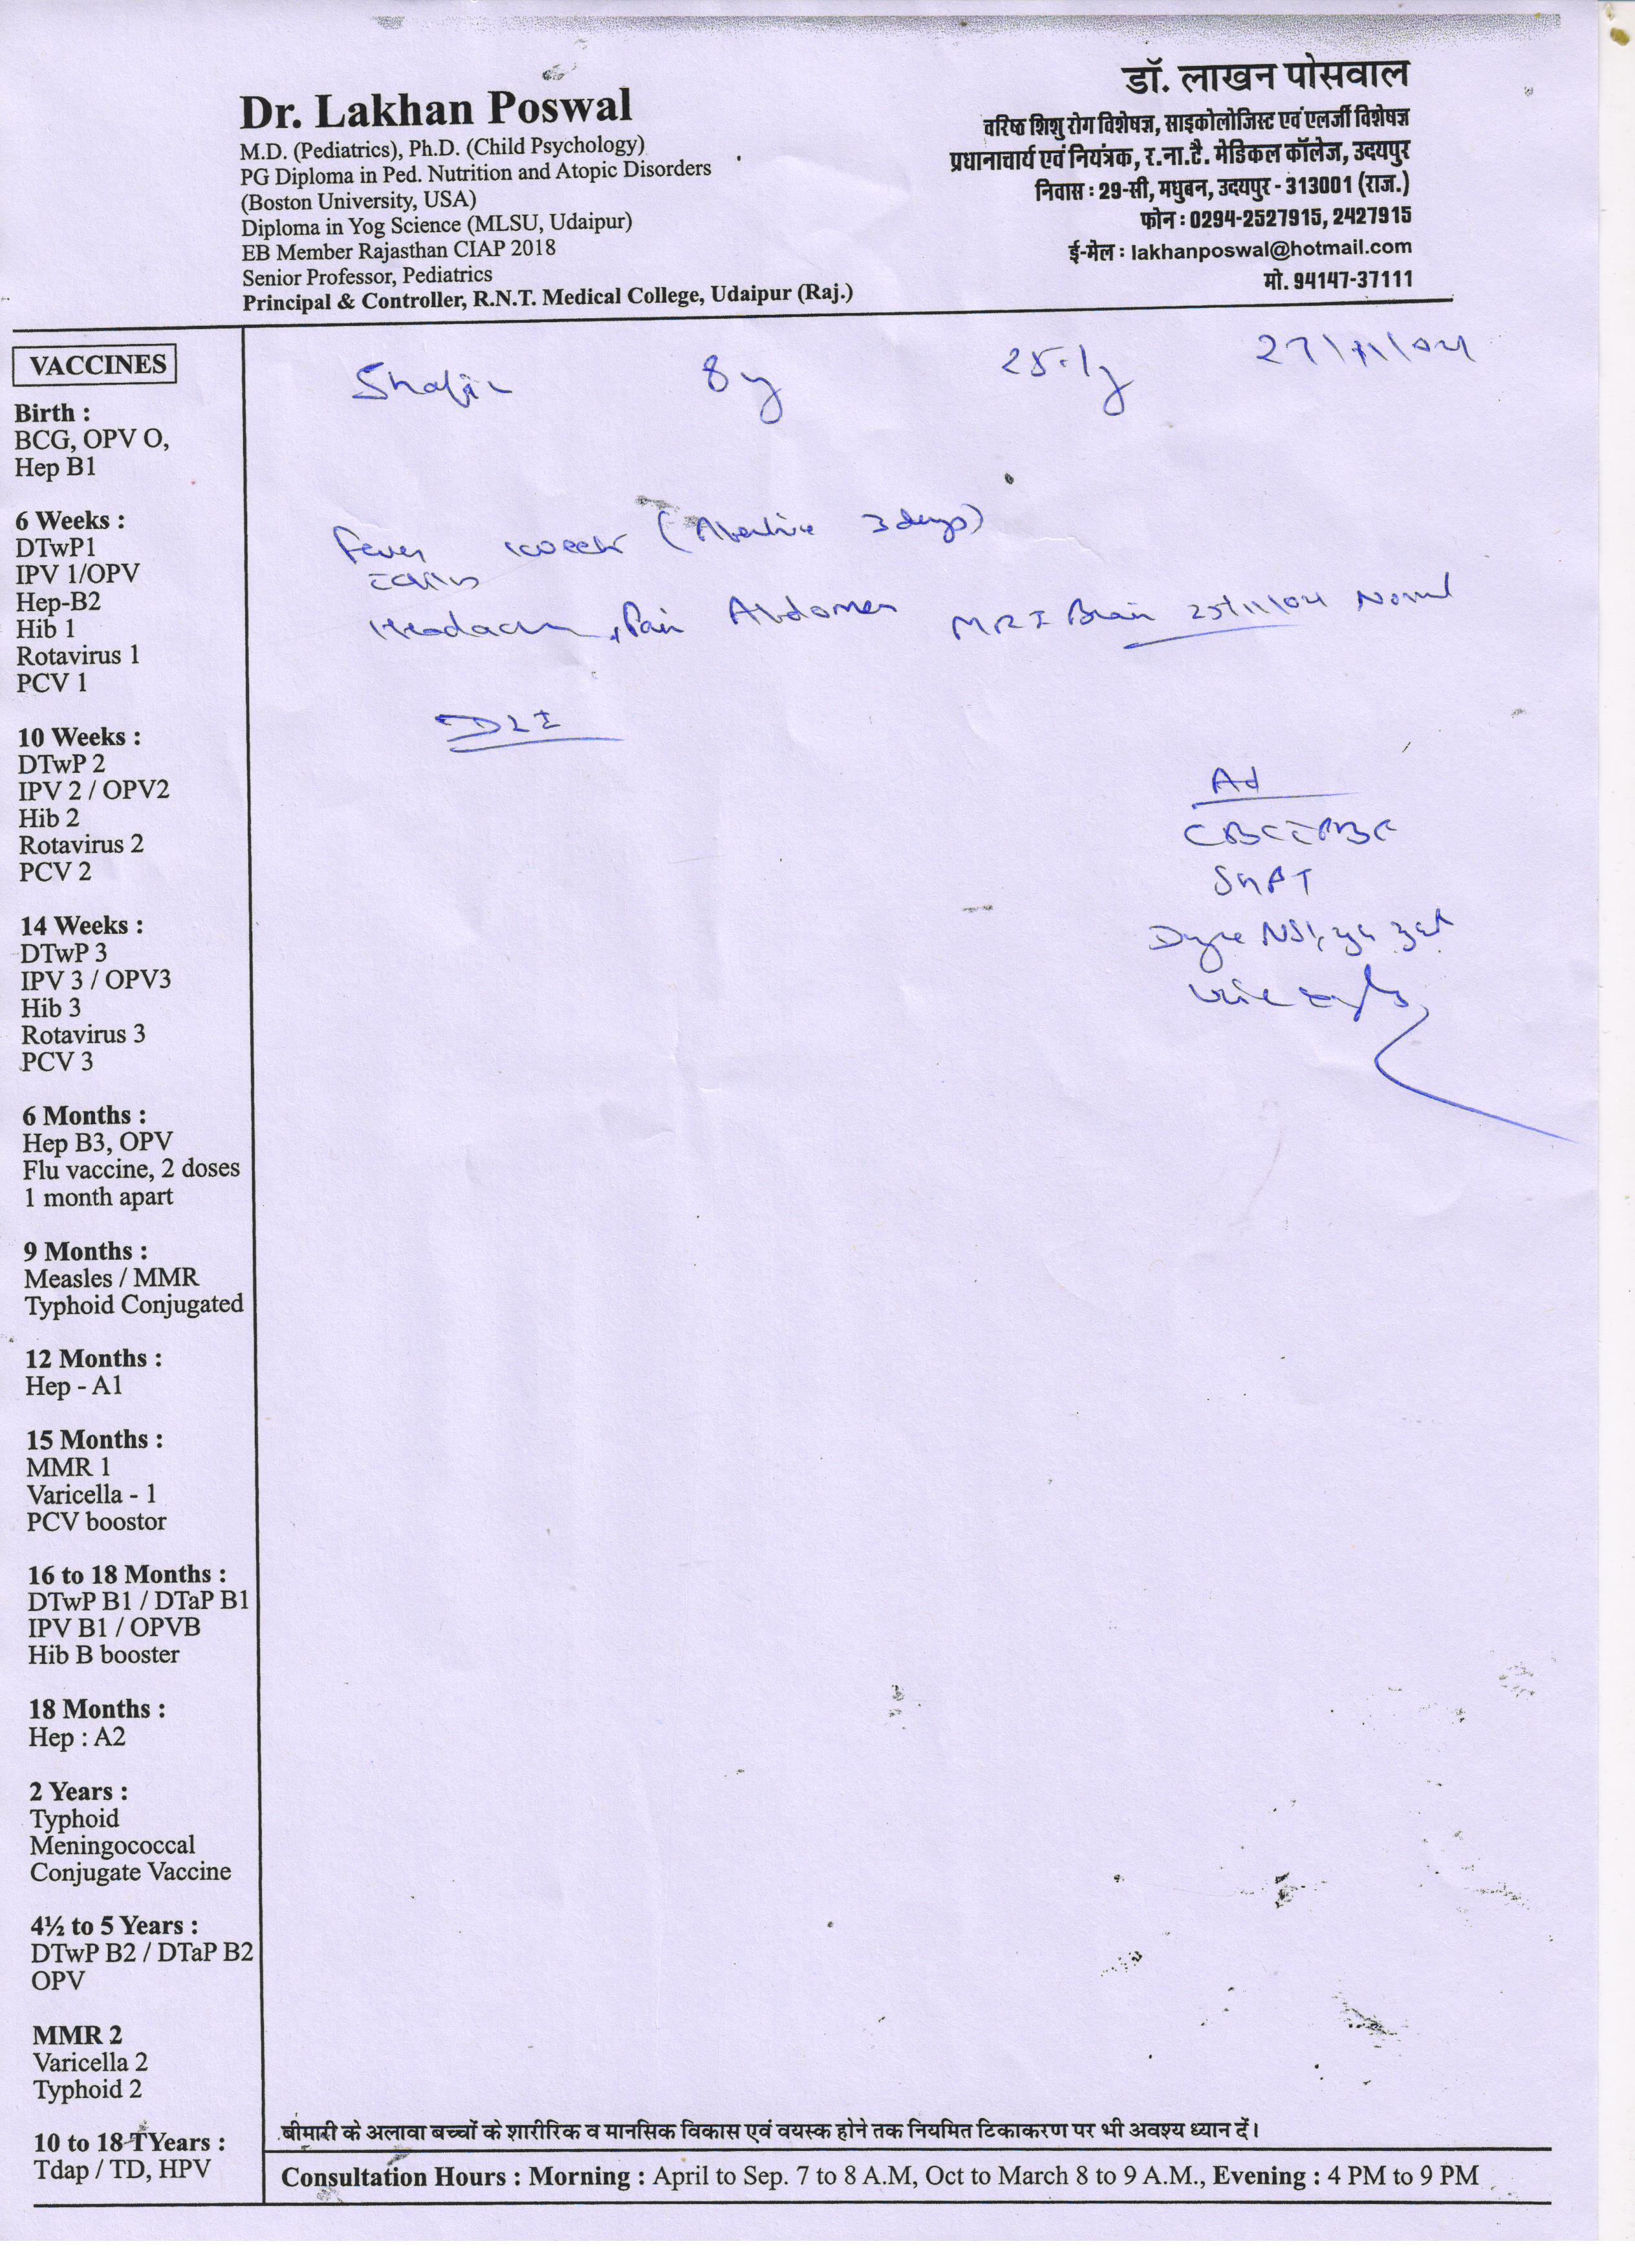 Dr. Lakhan Poswal
M.D. (Pediatrics), Ph.D. (Child Psychology)
PG Diploma in Ped. Nutrition and Atopic Disorders
(Boston University, USA)
Diploma in Yog Science (MLSU, Udaipur)
EB Member Rajasthan CIAP 2018
Senior Professor, Pediatrics
Principal & Controller, R.N.T. Medical College, Udaipur (Raj.)
डॉ. लाखन पोसवाल
वरिष्ठ शिशु रोग विशेषज्ञ, साइकोलोजिस्ट एवं एलर्जी विशेषज्ञ
प्रधानाचार्य एवं नियंत्रक, र.ना.टै. मेडिकल कॉलेज, उदयपुर
निवास : 29-सी, मधुबन, उदयपुर - 313001 (राज.)
फोन : 0294-2527915, 2427915
ई-मेल : lakhanposwal@hotmail.com
मो. 94147-37111
VACCINES
Birth :
BCG, OPV O,
Hep B1
6 Weeks :
DTwP1
IPV 1/OPV
Hep-B2
Hib 1
Rotavirus 1
PCV 1
10 Weeks :
DTwP 2
IPV 2 / OPV2
Hib 2
Rotavirus 2
PCV 2
14 Weeks :
DTwP 3
IPV 3 / OPV3
Hib 3
Rotavirus 3
PCV 3
6 Months :
Hep B3, OPV
Flu vaccine, 2 doses
1 month apart
9 Months :
Measles / MMR
Typhoid Conjugated
12 Months :
Hep - A1
15 Months :
MMR 1
Varicella - 1
PCV boostor
16 to 18 Months :
DTwP B1 / DTaP B1
IPV B1 / OPVB
Hib B booster
18 Months :
Hep : A2
2 Years :
Typhoid
Meningococcal
Conjugate Vaccine
4½ to 5 Years :
DTwP B2 / DTaP B2
OPV
MMR 2
Varicella 2
Typhoid 2
10 to 18 TYears :
Tdap / TD, HPV
8y
Fever (Abortive 3 days)
Headache, Pain Abdomen MRI Brain Normal
Ad
SGPT
बीमारी के अलावा बच्चों के शारीरिक व मानसिक विकास एवं वयस्क होने तक नियमित टिकाकरण पर भी अवश्य ध्यान दें।
Consultation Hours : Morning : April to Sep. 7 to 8 A.M, Oct to March 8 to 9 A.M., Evening : 4 PM to 9 PM